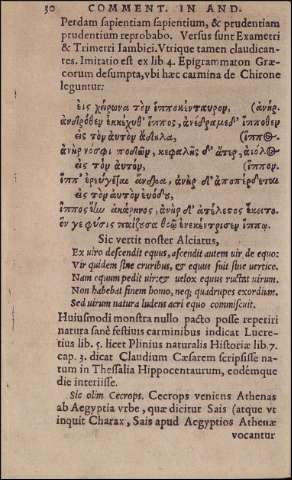 50 COMMENT. IN AND.
Perdam sapientiam sapientium, & prudentiam
prudentium reprobabo. Versus sunt Exametri
& Trimetri Iambici. Vtrique tamen claudican-
tes. Imitatio est ex lib 4. Epigrammaton Græ-
corum desumpta, vbi hæc carmina de Chirone
leguntur:
εἰς χείρωνα τὸν ἱπποκένταυρον. (ἀνήρ.
ἀνδρόθεν ἐκκέχυθ' ἵππος, ἀνέδραμε δ' ἱππόθεν
εἰς τὸν αὐτὸν
ἀνὴρ νόσφι ποδῶν, κεφαλῆς δ' ἄτερ,
εἰς τὸν αὐτόν, (ἵππον.
ἵππ' ἐρεύγεται ἄνδρα, ἀνὴρ δ' ἀποπέρδεται
εἰς τὸν αὐτὸν
ἵππος ἀκάρηνος, ἀνὴρ δ' ἀτέλεστος ἔκειτο.
ἣν φύσις παίζουσα θοῷ ἐνεκέντρισεν ἵππῳ.
Sic vertit noster Alciatus,
Ex uiro descendit equus, ascendit autem uir de equo:
Vir quidem sine cruribus, et equus fuit sine uertice.
Nam equum pedit uir: et uelox equus ructat uirum.
Non habebat finem homo, neq; quadrupes exordium.
Sed uirum natura ludens acri equo commiscuit.
Huiusmodi monstra nullo pacto posse reperiri
natura sanè festiuis carminibus indicat Lucre-
tius lib. 5. licet Plinius naturalis Historiæ lib. 7.
cap. 3. dicat Claudium Cæsarem scripsisse na-
tum in Thessalia Hippocentaurum, eodémque
die interiisse.
Sic olim Cecrops. Cecrops veniens Athenas
ab Aegyptia vrbe, quæ dicitur Sais (atque vt
inquit Charax, Sais apud Aegyptios Athenæ
vocantur